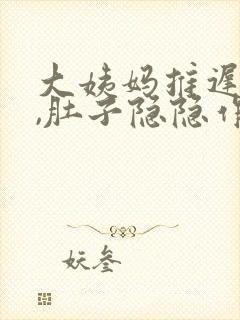 大姨妈推迟
,肚子隐隐作
妖叁